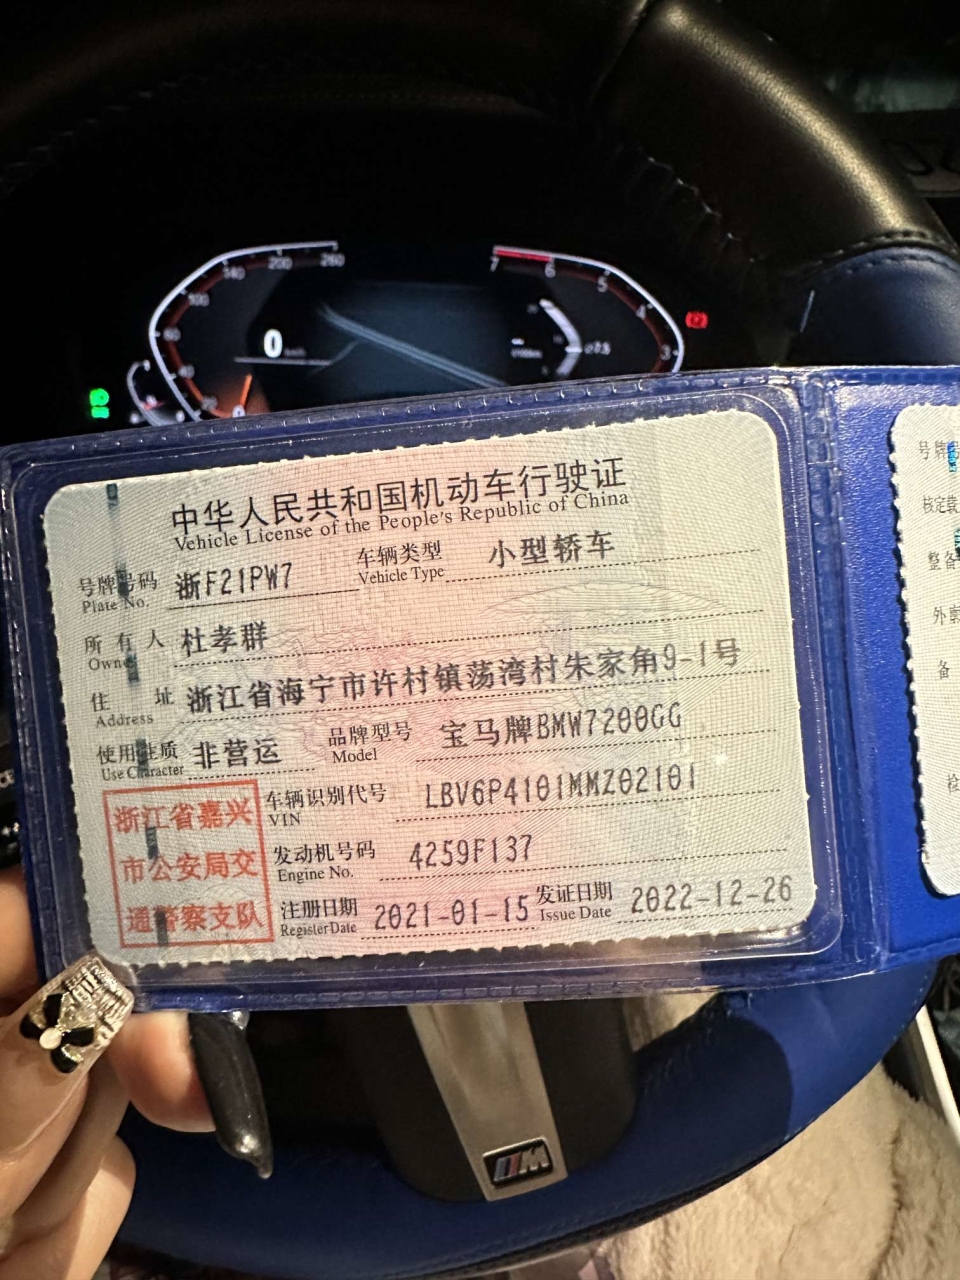 260
200
140
100
60
7
6
5
4
3
0
中华人民共和国机动车行驶证
Vehicle License of the People's Republic of China
号牌号码 浙F21PW7 车辆类型 小型轿车
Plate No. Vehicle Type
所有人 杜孝群
Owner
住址 浙江省海宁市许村镇荡湾村朱家角9-1号
Address
使用性质 非营运 品牌型号 宝马牌BMW7200GG
Use Character Model
车辆识别代号 LBV6P4101MMZ02101
VIN
发动机号码 4259F137
Engine No.
注册日期 2021-01-15 发证日期 2022-12-26
Register Date Issue Date
浙江省嘉兴
市公安局交
通警察支队
号牌号
核定载
整备
外廓
备
检
M